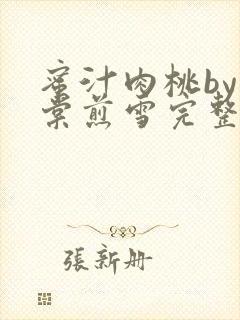 蜜汁肉桃by
棠煎雪完整
張新册